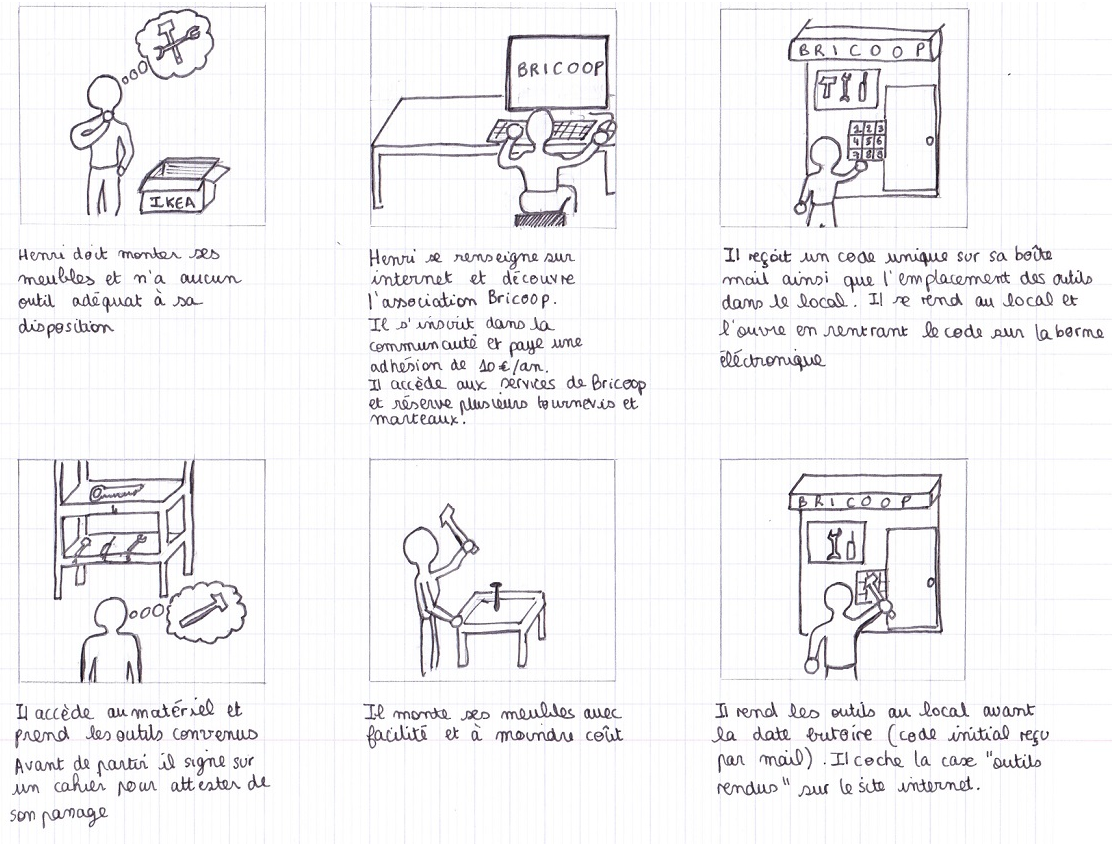 IKEA
Henri doit monter ses
meubles et n'a aucun
outil adéquat à sa
disposition
BRICOOP
Henri se renseigne sur
internet et découvre
l'association Bricoop.
Il s'inscrit dans la
communauté et paye une
adhésion de 10€/an.
Il accède aux services de Bricoop
et réserve plusieurs tournevis et
marteaux.
BRICOOP
1 2 3
4 5 6
7 8 9
Il reçoit un code unique sur sa boîte
mail ainsi que l'emplacement des outils
dans le local. Il se rend au local et
l'ouvre en rentrant le code sur la borne
éléctronique
Il accède au matériel et
prend les outils convenus
Avant de partir il signe sur
un cahier pour attester de
son passage
Il monte ses meubles avec
facilité et à moindre coût
BRICOOP
Il rend les outils au local avant
la date butoire (code initial reçu
par mail). Il coche la case "outils
rendus" sur le site internet.